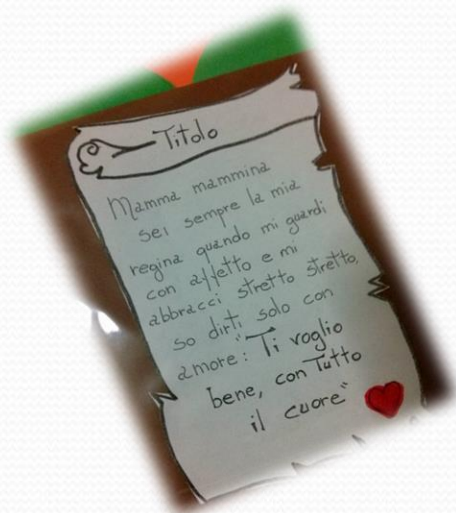 Titolo
Mamma mammina
sei sempre la mia
regina quando mi guardi
con affetto e mi
abbracci stretto stretto,
so dirti solo con
amore: "Ti voglio
bene, con Tutto
il cuore"